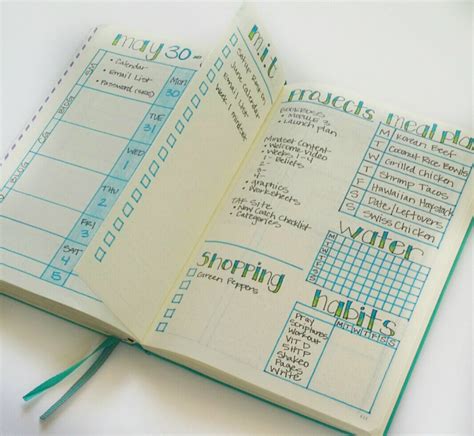 may 30
• Calendar
• Email List
Mon
30
Tue
31
Wed
1
Thu
2
Fri
3
Sat
4
5
mit
June Calendar
Email List
Week 1
projects
• Module 3
• Launch plan
Mindset Content
• Welcome Video
• Weeks 1-4
1- Beliefs
2-
3-
4-
• graphics
• Worksheets
Site
• New Coach Checklist
• Categories
shopping
Green Peppers
meal plan
M Korean Beef
T Coconut Rice Bowls
W Grilled Chicken
T Shrimp Tacos
F Hawaiian Haystack
S Date/Leftovers
S Swiss Chicken
water
habits
M T W T F S S
Pray
Scriptures
Workout
VIT D
5HTP
Shakeo
Pages
Write